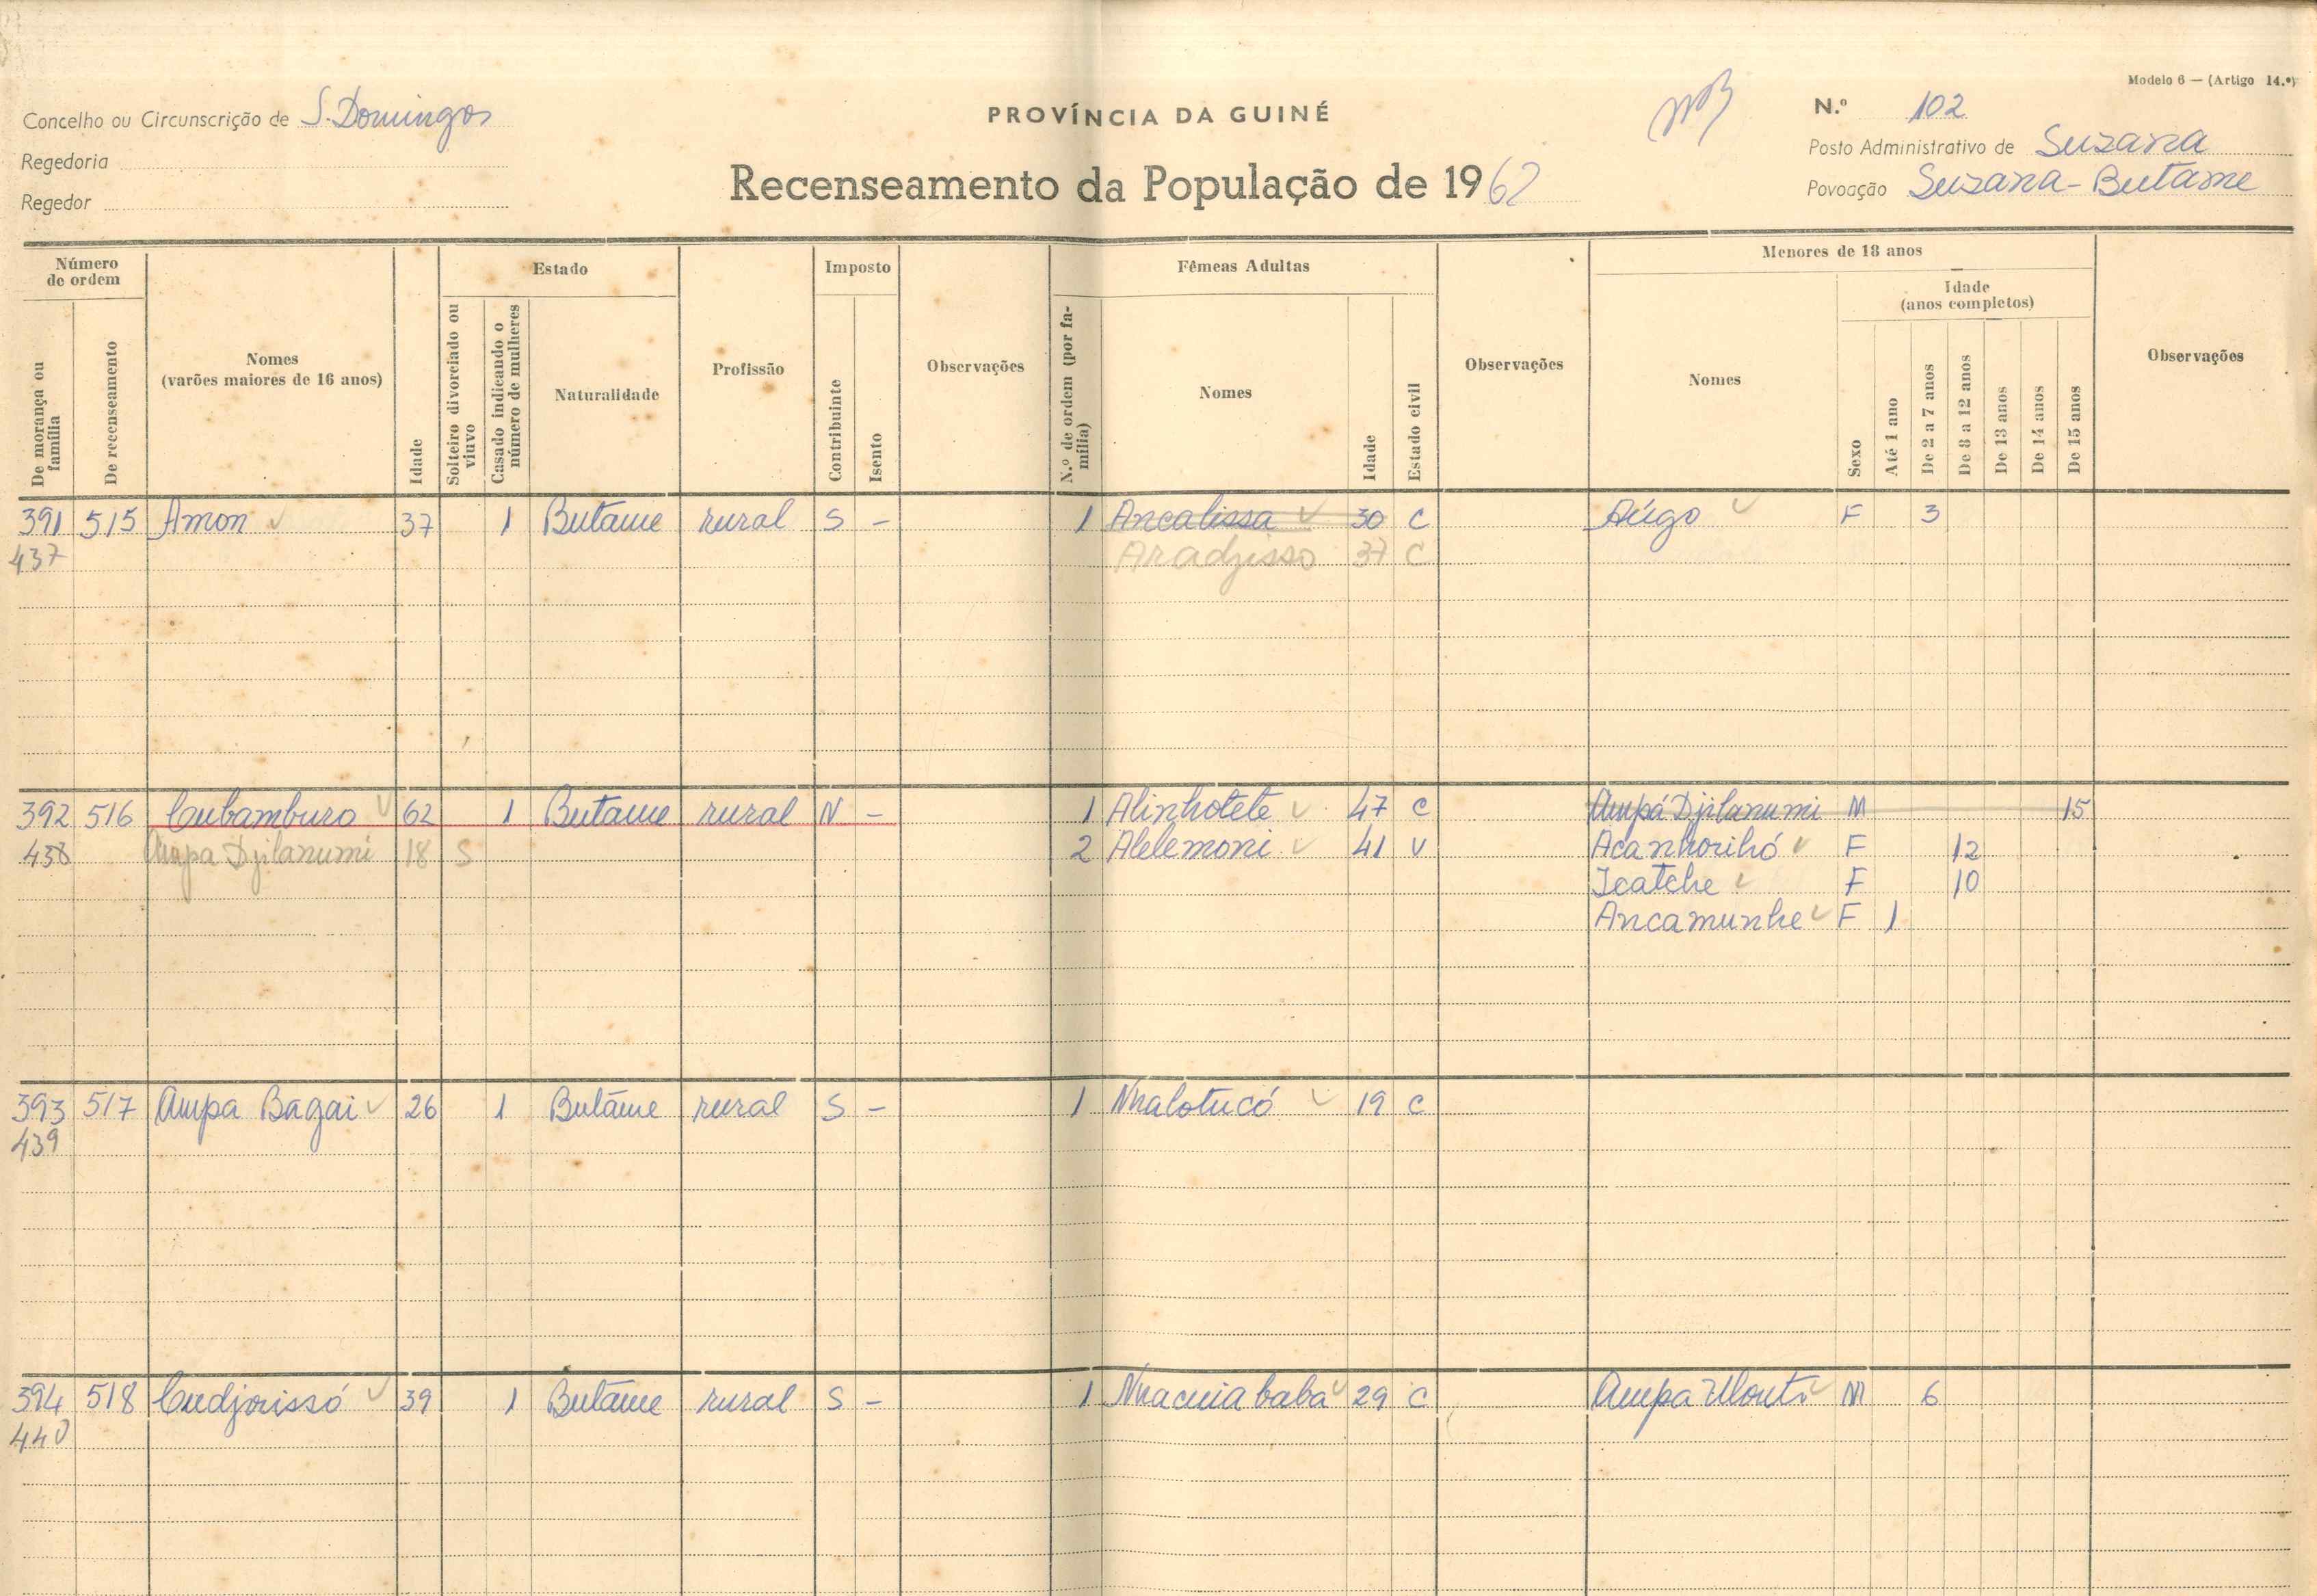 Modelo 6 — (Artigo 14.º)
Concelho ou Circunscrição de S. Domingos
PROVÍNCIA DA GUINÉ
N.º 102
Regedoria
Posto Administrativo de Suzana
Regedor
Recenseamento da População de 1962
Povoação Suzana - Butame
Número de ordem
De morança ou família
De recenseamento
Nomes
(varões maiores de 16 anos)
Idade
Estado
Solteiro divorciado ou viuvo
Casado indicando o número de mulheres
Naturalidade
Profissão
Imposto
Contribuinte
Isento
Observações
Fêmeas Adultas
N.º de ordem (por família)
Nomes
Idade
Estado civil
Observações
Menores de 18 anos
Nomes
Idade
(anos completos)
Sexo
Até 1 ano
De 2 a 7 anos
De 8 a 12 anos
De 13 anos
De 14 anos
De 15 anos
Observações
391 515 Amon 37 1 Butame rural S - 1 Ancalissa 30 C Aúgo F 3
437 Aradjisso 37 C
392 516 Cubamburo 62 1 Butame rural N - 1 Alinhotete 47 C Ampá Djilanumi M 15
438 Ampa Djilanumi 18 S 2 Alelemoni 41 V Acanhorihó F 12
Icatche F 10
Ancamunhe F 1
393 517 Ampa Bagai 26 1 Butame rural S - 1 Nhalotucó 19 C
439
394 518 Cudjorissó 39 1 Butame rural S - 1 29 C Ampa M 6
440